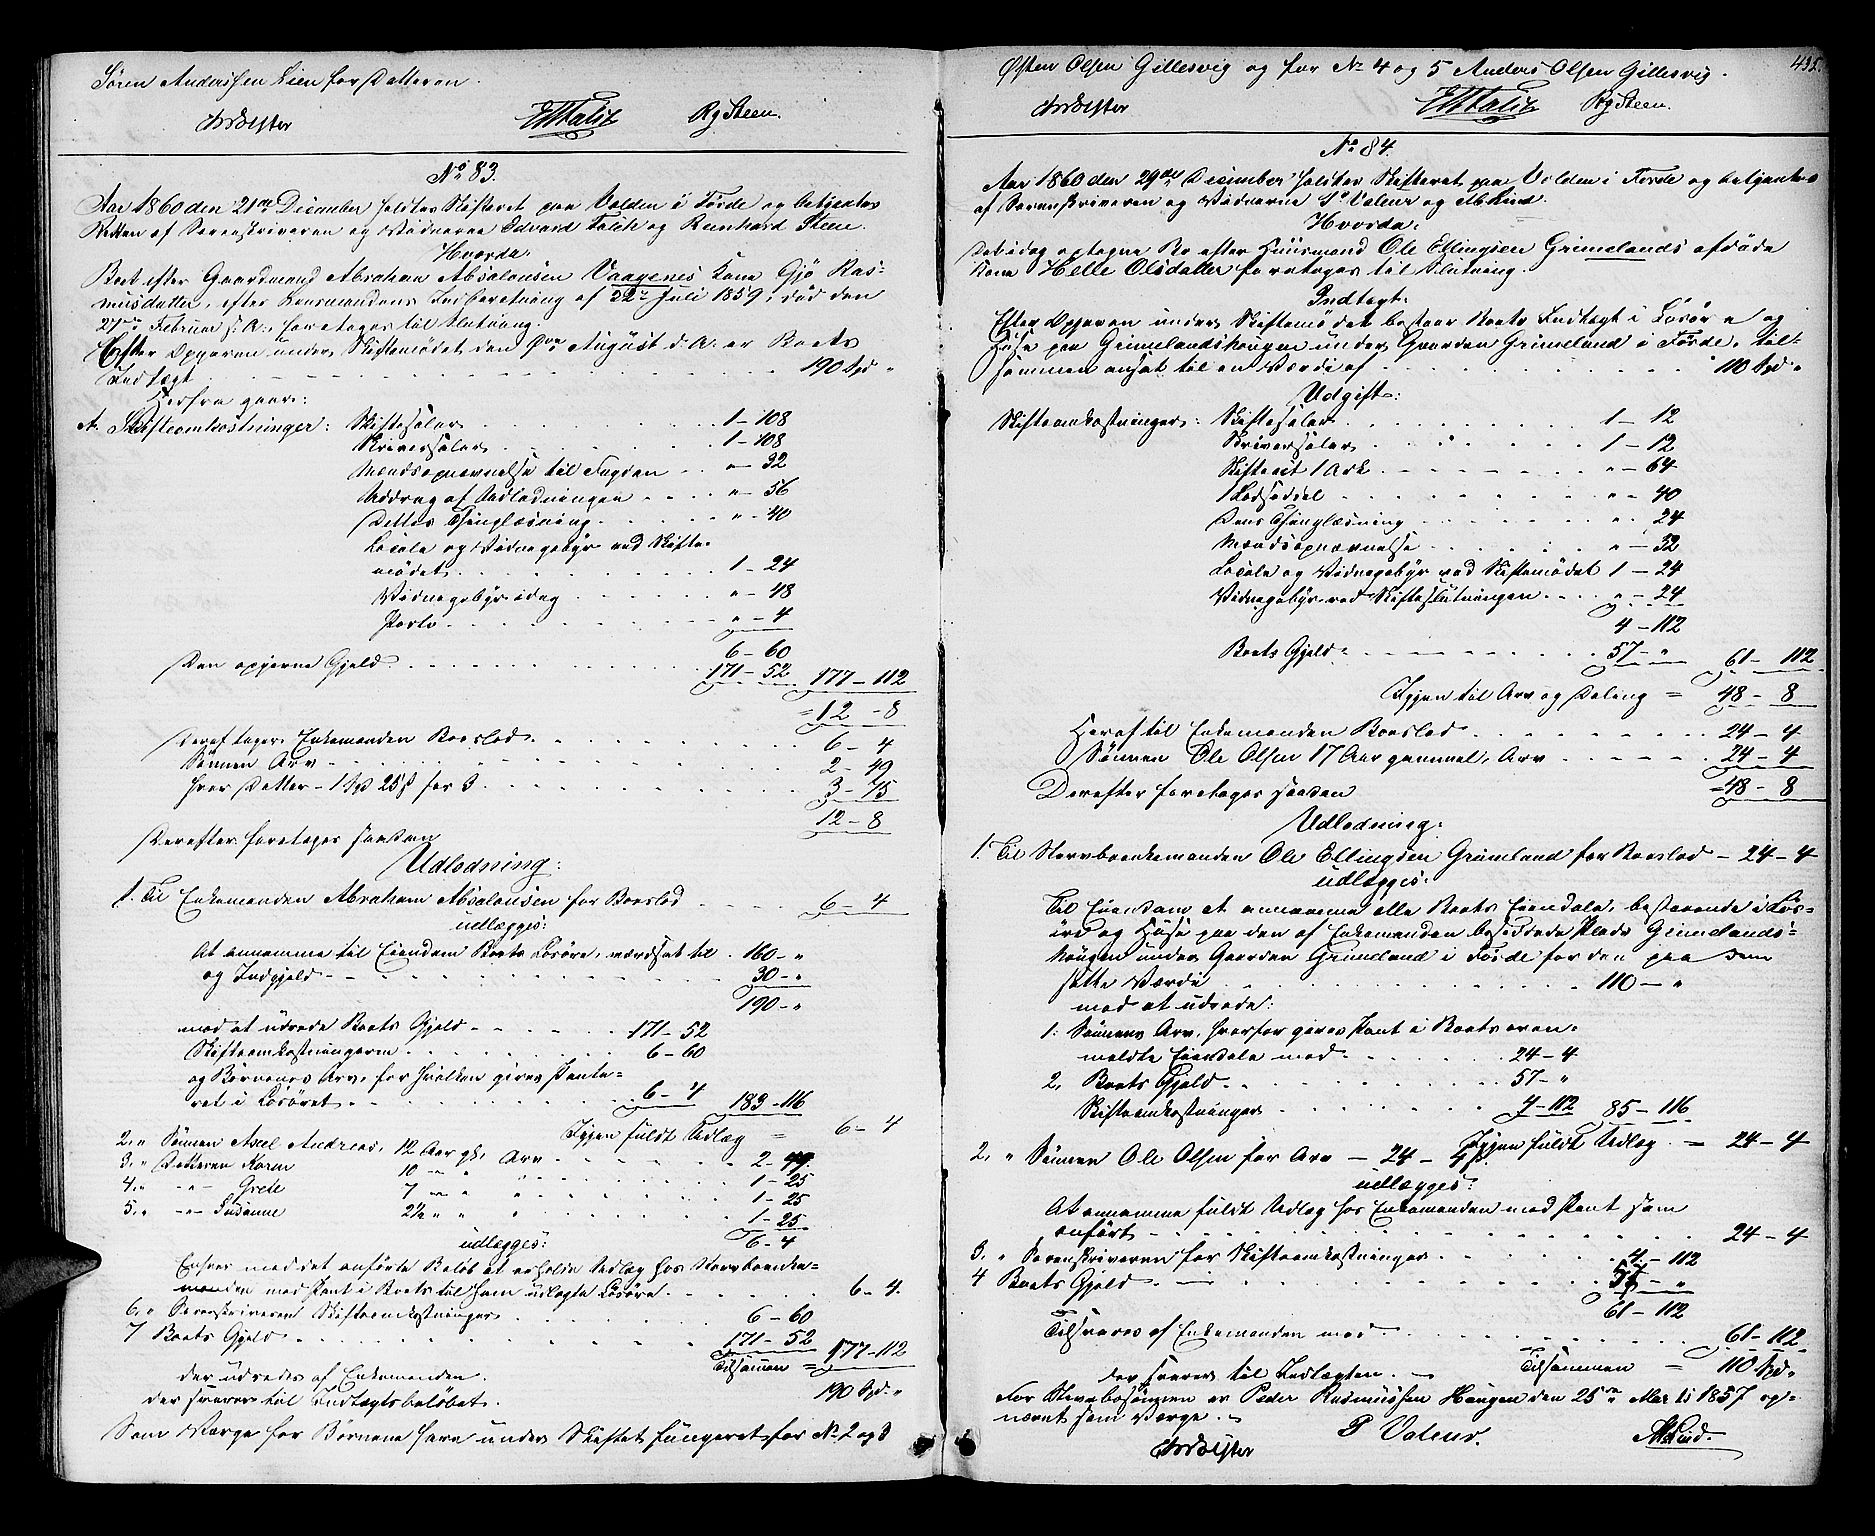 Søren Anderssen Lien for Datteren.
EMFalch RgSteen.
No 83.
Aar 1860 den 21de December holdtes Skifteret paa Volden i Førde og betjentes
Retten af Sorenskriveren og Vidnerne Edvard Falch og Reinhard Steen.
Hvorda:
Boet efter Gaardmand Abraham Absalonsen Vaagenes Kone Gjø Ras-
musdatter, efter Lensmandens Indberetning af 22de Juli 1859, død den
27de Februar s. A., foretages til Slutning.
Efter Opgaven under Skiftemødet den 9de August d. A. er Boets
Indtægt 190 Spd "
Herfra gaar:
A. Skifteomkostninger: Skiftesalar 1 - 108
Skriversalar 1 - 108
Mændsopnævnelse til Fogden " - 32
Uddrag af Udlodningen " - 56
Dettes Thinglæsning " - 40
Locale og Vidnegebyr ved Skifte-
mødet 1 - 24
Vidnegebyr idag " - 48
Porto " - 4
6 - 60
Den opgivne Gjeld 171 - 52 177 - 112
= 12 - 8
Deraf tager Enkemanden Boeslod 6 - 4
Sønnen Arv 2 - 49
hver Datter - 1 Spd 25 s for 3 3 - 75
12 - 8
Derefter foretages saadan
Udlodning:
1. Til Enkemanden Abraham Absalonsen for Boeslod 6 - 4
udlægges:
At annamme til Eiendom Boets Løsøre, værdsat til 160 - "
og Indgjeld 30 - "
190 - "
mod at udrede Boets Gjeld 171 - 52
Skifteomkostningerne 6 - 60
og Børnenes Arv, for hvilken gives Pante-
ret i Løsøret 6 - 4 183 - 116
Igjen fuldt Udlæg = 6 - 4
2, " Sønnen Axel Andreas, 12 Aar gl, Arv 2 - 49
3, " Datteren Karen 10 " " " 1 - 25
4, " -"- Grete 7 " " " 1 - 25
5, " -"- Susanne 2½ " " " 1 - 25
udlægges: 6 - 4
Enhver med det anførte Beløb at erholde Udlæg hos Stervboenke-
manden med Pant i Boets til ham udlagte Løsøre 6 - 4.
6, " Sorenskriveren Skifteomkostninger 6 - 60
7 Boets Gjeld 171 - 52
der udredes af Enkemanden. Tilsammen = 177 - 112
der svarer til Indtægtsbeløbet. 190 Spd. "
Som Værge for Børnene have under Skiftet fungeret for No 2 og 3
Østen Olsen Gillesvig og for No 4 og 5 Anders Olsen Gillesvig. 435.
EMFalch RgSteen.
No 84.
Aar 1860 den 29de December holdtes Skifteret paa Volden i Førde og betjentes
af Sorenskriveren og Vidnerne P Valeur og Ab Lind.
Hvorda:
Det idag optagne Bo efter Huusmand Ole Ellingsen Grimelands afdøde
Kone Helle Olsdatter foretages til Slutning.
Indtægt:
Efter Opgaven under Skiftemødet bestaar Boets Indtægt i Løsøre og
Huse paa Grimelandshougen under Gaarden Grimeland i Førde, til-
sammen ansat til en Værdi af 110 Spd. "
Udgift:
Skifteomkostninger: Skiftesalar 1 - 12
Skriversalar 1 - 12
Skifterit 1 Ark " - 64
1 Lodseddel " - 40
Dens Thinglæsning " - 24
Mændsopnævnelse " - 32
Locale og Vidnegebyr ved Skiftemødet 1 - 24
Vidnegebyr ved Skifteslutningen " - 24
4 - 112
Boets Gjeld 57 - " 61 - 112
Igjen til Arv og Deling = 48 - 8
Heraf til Enkemanden Boeslod 24 - 4
Sønnen Ole Olsen 17 Aar gammel, Arv 24 - 4
Derefter foretages saadan = 48 - 8
Udlodning:
1. Til Stervboenkemanden Ole Ellingsen Grimeland for Boeslod - 24 - 4
udlægges:
Til Eiendom at annamme alle Boets Eiendele, bestaaende i Løs-
øre og Huse paa den af Enkemanden besiddede Plads Grimelands-
hougen under Gaarden Grimeland i Førde for den paa dem
satte Værdi 110 - "
mod at udrede:
1. Sønnens Arv, hvorfor gives Pant i Boets oven-
meldte Eiendele med 24 - 4
2, Boets Gjeld 57 - "
Skifteomkostninger 4 - 112 85 - 116
Igjen fuldt Udlæg = 24 - 4
2, " Sønnen Ole Olsen for Arv - 24 - 4 s
udlægges:
At annamme fuldt Udlæg hos Enkemanden med Pant som
anført 24 - 4
3, " Sorenskriveren for Skifteomkostninger 4 - 112
4 Boets Gjeld 57 - "
61 - 112
Tilsvares af Enkemanden med 61 - 112
der svarer til Indtægten. Tilsammen = 110 Spd. "
For Stervbosønnen er Peder Rasmussen Haugen den 25de Marts 1857 op-
nævnt som Værge.
P Valeur. AbLind.